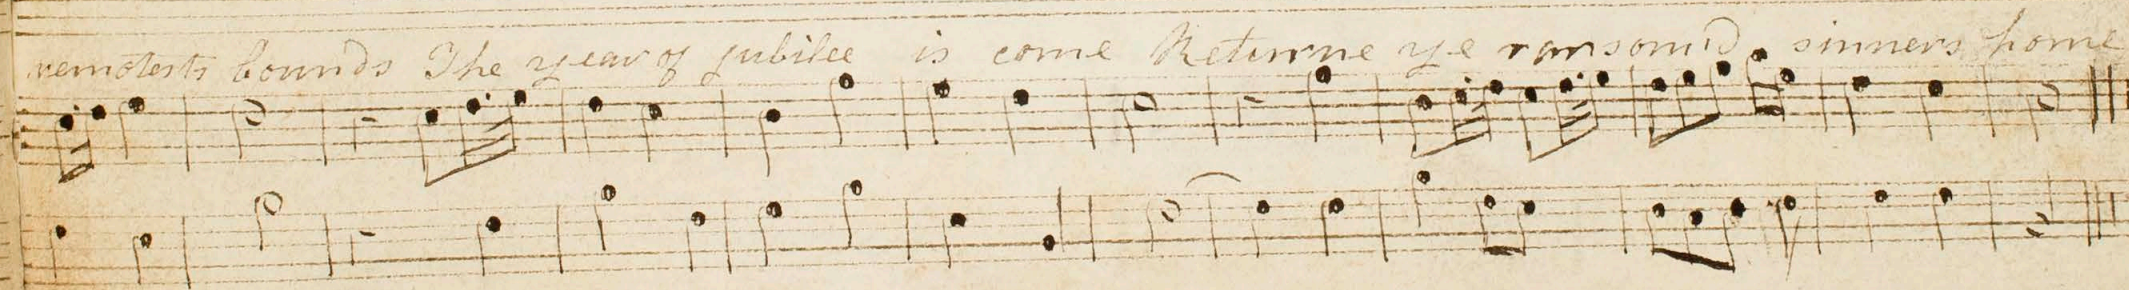 remotests bounds The year of jubilee is come Returne ye ransom'd sinners home